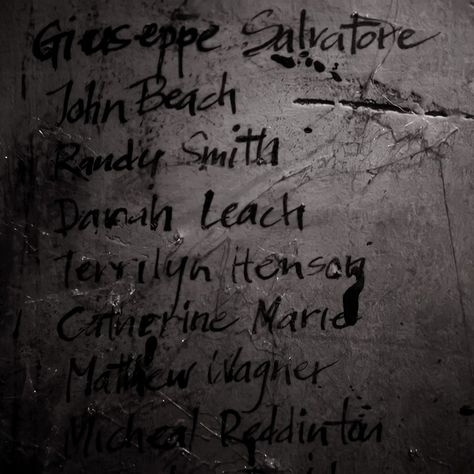 Giuseppe Salvatore
John Beach
Randy Smith
Danah Leach
Terrilyn Henson
Catherine Marie
Matthew Wagner
Micheal Reddinton